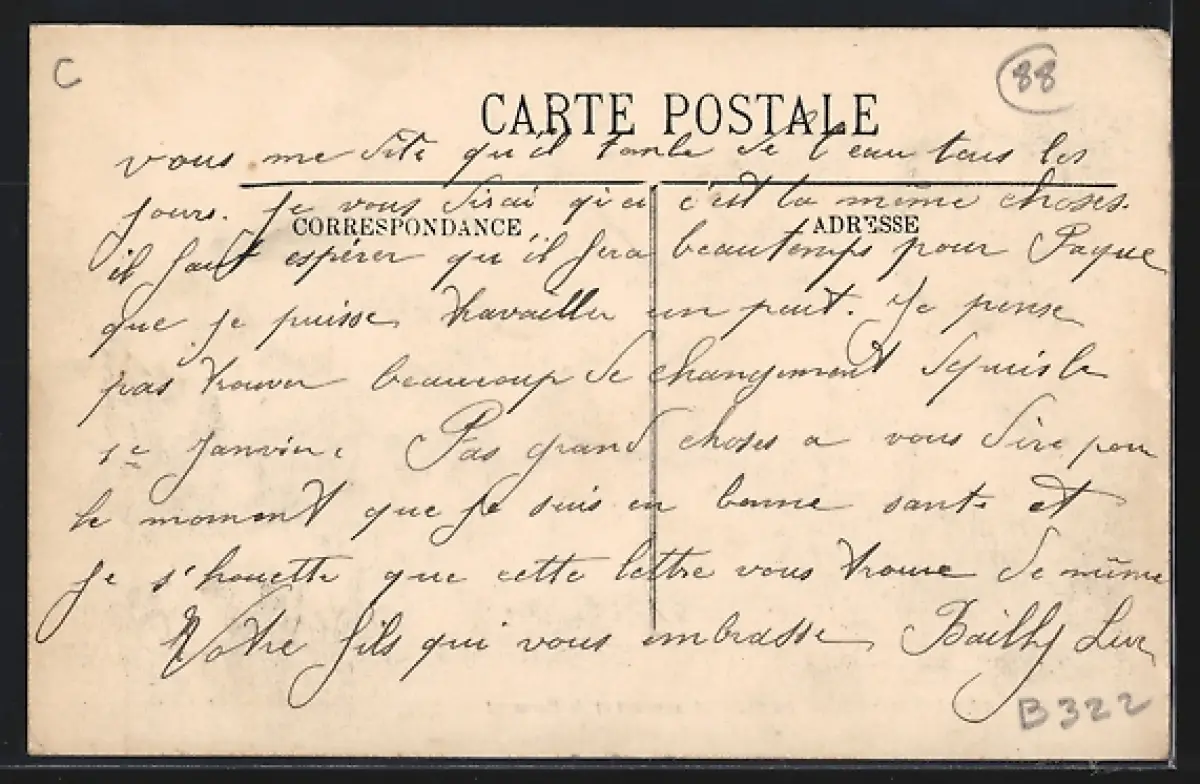 C
88
CARTE POSTALE
vous me dite qu'il tonbe de l'eau tous les
jours. Je vous dirai qu'ici c'est la même choses.
CORRESPONDANCE
ADRESSE
il faut espérer qu'il fera beautemps pour Paque
que je puisse travailler un peut. Je pense
pas trouver beaucoup de changement depuis le
1e Janvier. Pas grand choses a vous dire pour
le moment que je suis en bonne sante et
je s'houette que cette lettre vous trouve de même
Votre fils qui vous embrasse Bailly
B322